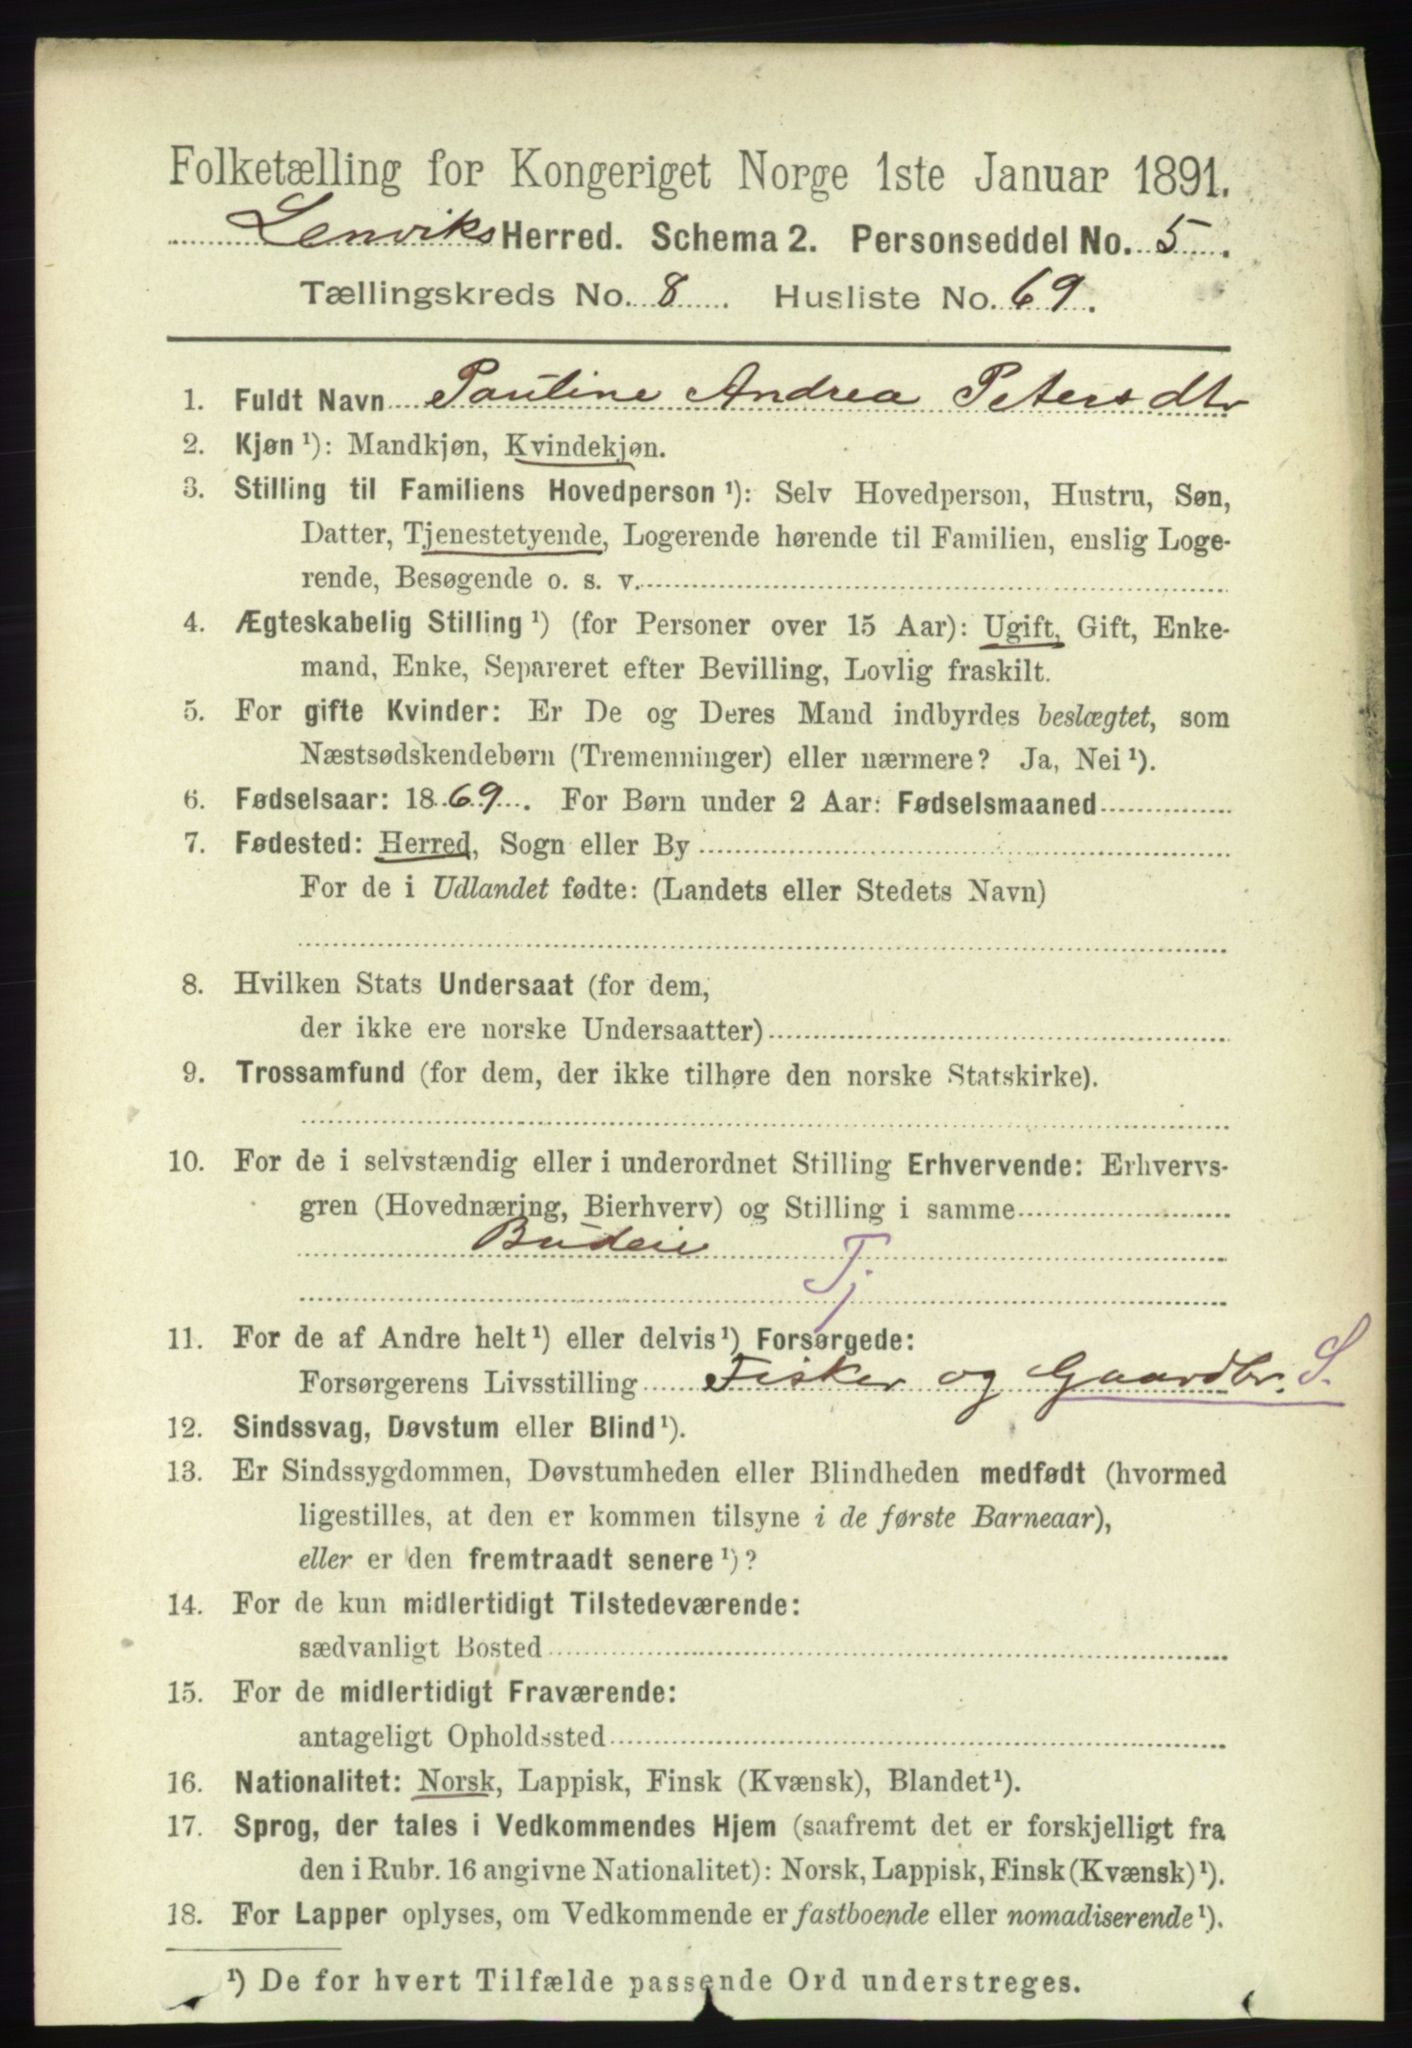 Folketælling for Kongeriget Norge 1ste Januar 1891.
Lenviks Herred. Schema 2. Personseddel No. 5.
Tællingskreds No. 8. Husliste No. 69.
1. Fuldt Navn Pauline Andrea Petersdtr
2. Kjøn ¹): Mandkjøn, Kvindekjøn.
3. Stilling til Familiens Hovedperson ¹): Selv Hovedperson, Hustru, Søn,
Datter, Tjenestetyende, Logerende hørende til Familien, enslig Loge-
rende, Besøgende o. s. v.
4. Ægteskabelig Stilling ¹) (for Personer over 15 Aar): Ugift, Gift, Enke-
mand, Enke, Separeret efter Bevilling, Lovlig fraskilt.
5. For gifte Kvinder: Er De og Deres Mand indbyrdes beslægtet, som
Næstsødskendebørn (Tremenninger) eller nærmere? Ja, Nei ¹).
6. Fødselsaar: 1869. For Børn under 2 Aar: Fødselsmaaned
7. Fødested: Herred, Sogn eller By
For de i Udlandet fødte: (Landets eller Stedets Navn)
8. Hvilken Stats Undersaat (for dem,
der ikke ere norske Undersaatter)
9. Trossamfund (for dem, der ikke tilhøre den norske Statskirke).
10. For de i selvstændig eller i underordnet Stilling Erhvervende: Erhvervs-
gren (Hovednæring, Bierhverv) og Stilling i samme
Budeie
Tj.
11. For de af Andre helt ¹) eller delvis ¹) Forsørgede:
Forsørgerens Livsstilling Fisker og Gaardbr. S.
12. Sindssvag, Døvstum eller Blind ¹).
13. Er Sindssygdommen, Døvstumheden eller Blindheden medfødt (hvormed
ligestilles, at den er kommen tilsyne i de første Barneaar),
eller er den fremtraadt senere ¹)?
14. For de kun midlertidigt Tilstedeværende:
sædvanligt Bosted
15. For de midlertidigt Fraværende:
antageligt Opholdssted
16. Nationalitet: Norsk, Lappisk, Finsk (Kvænsk), Blandet ¹).
17. Sprog, der tales i Vedkommendes Hjem (saafremt det er forskjelligt fra
den i Rubr. 16 angivne Nationalitet): Norsk, Lappisk, Finsk (Kvænsk) ¹).
18. For Lapper oplyses, om Vedkommende er fastboende eller nomadiserende ¹).
¹) De for hvert Tilfælde passende Ord understreges.